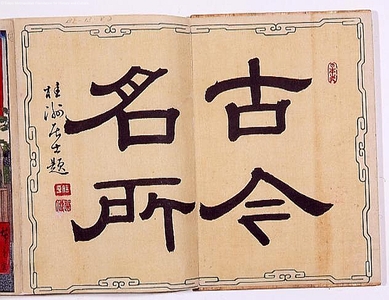 古今
名所
桂洲居士題